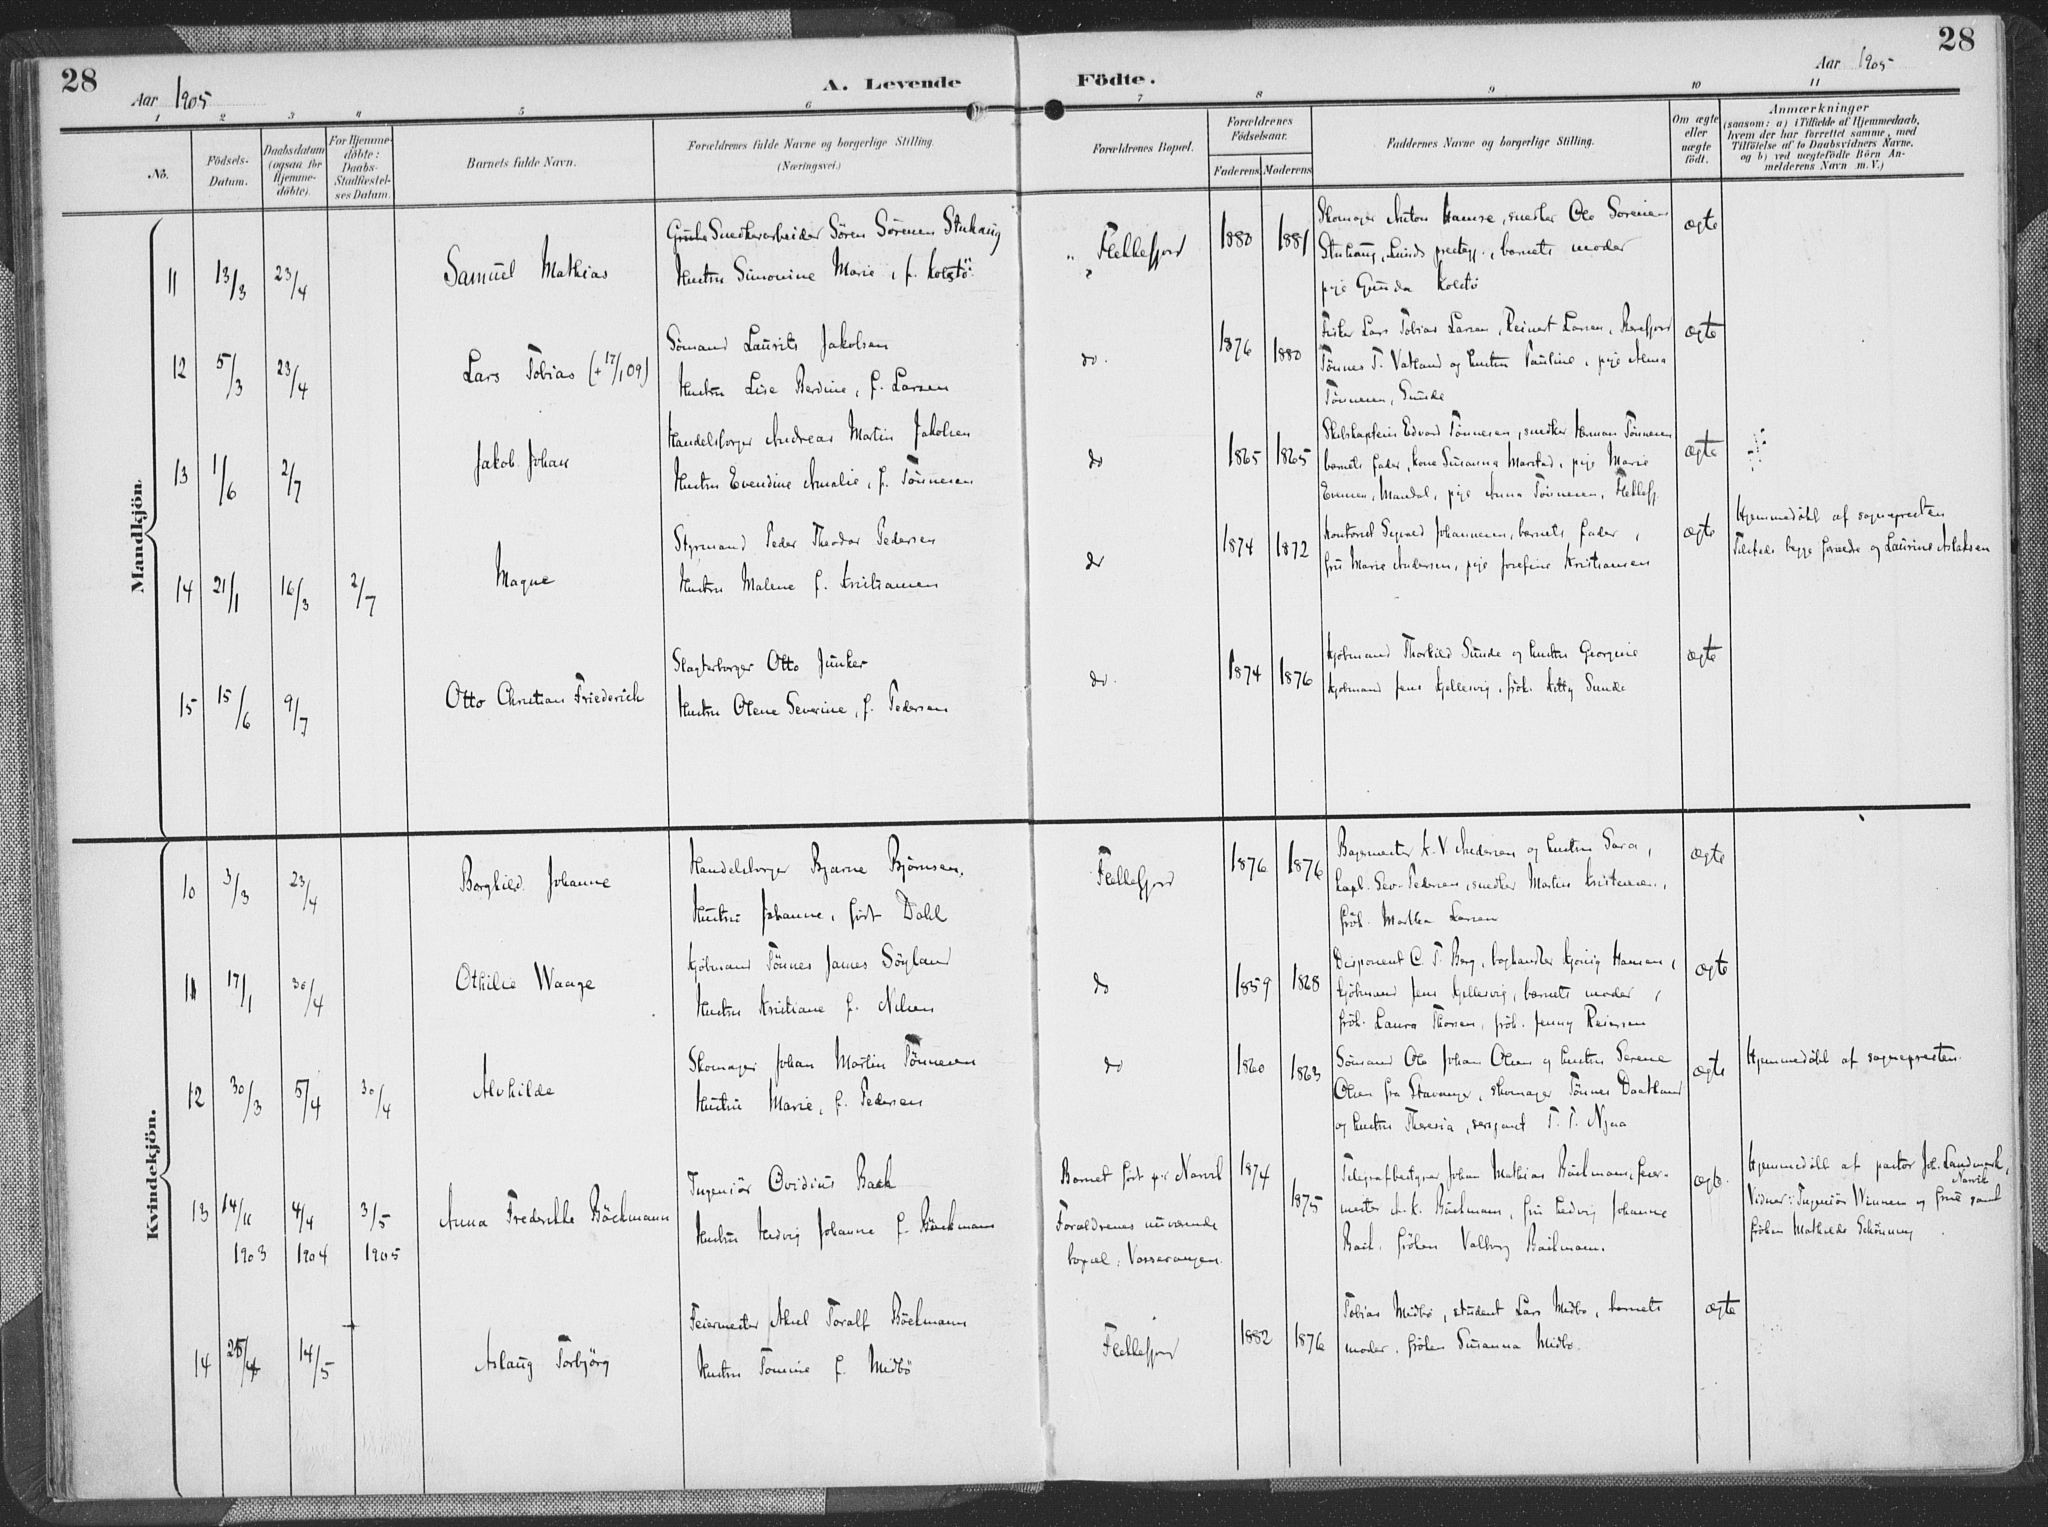 28
Aar 1905
A. Levende
Födte.
Aar 1905
28
1 2 3 4 5 6 7 8 9 10 11
No.
Födsels-Datum.
Daabsdatum (ogsaa for Hjemme-döbte).
For Hjemme-döbte: Daabs-Stadfæstel-ses Datum.
Barnets fulde Navn.
Forældrenes fulde Navne og borgerlige Stilling.
(Næringsvei.)
Forældrenes Bopæl.
Forældrenes Födselsaar.
Faderens Moderens
Faddernes Navne og borgerlige Stilling.
Om ægte eller uægte födt.
Anmærkninger
(saasom: a) i Tilfælde af Hjemmedaab,
hvem der har forrettet samme, med
Tilföielse af to Daabsvidners Navne,
og b) ved uægtefödte Börn An-
melderens Navn m.V.)
Mandkjön.
11 13/3 23/4 Samuel Mathias
Snedkerarbeider Sören Sörensen Stuhaug
Hustru Simonine Marie, f. Kolstö
Flekkefjord 1880 1881
Skomager Anton Hamre, snedker Ole Sörensen
Stuhaug, Lunds prestegj., barnets moder
pige Gunda Kolstö
ægte
12 5/3 23/4 Lars Tobias (+ 17/1 09)
Sömand Laurits Jakobsen
Hustru Lise Berdine, f. Larsen
do. 1876 1880
Fisker Lars Tobias Larsen, Reinert Larsen,
Tönnes T. Vatland og hustru Pauline, pige Alma
Tönnesen, Sunde
ægte
13 1/6 2/7 Jakob Johan
Handelsborger Andreas Martin Jakobsen
Hustru Evendine Amalie, f. Tönnesen
do 1865 1865
Skibskaptein Edvard Tönnesen, snedker Herman Tönnesen
barnets fader, kone Susanna Marstad, pige Marie
Evensen, Mandal, pige Anna Tönnesen, Flekkefj.
ægte
14 21/1 16/3 2/7 Magne
Styrmand Peder Theodor Pedersen
Hustru Malene f. Kristiansen
do 1874 1872
Kontorist Sigurd Johannesen, barnets fader,
fru Marie Andersen, pige Josefine Kristiansen
ægte
Hjemmedöbt af sognepresten
Tilstede begge forældre og Laurine Aslaksen
15 15/6 9/7 Otto Christian Friederich
Slagterborger Otto Junker
Hustru Olene Severine, f. Pedersen
do. 1874 1876
Kjöbmand Thorkild Sunde og hustru Georgine
Kjöbmand Jens Kjellesvig, frök. Kitty Sunde
ægte
Kvindekjön.
10 3/3 23/4 Borghild Johanne
Handelsborger Bjarne Björnsen,
Hustru Johanne, födt Dahl
Flekkefjord 1876 1876
Bagermester K. V. Andersen og hustru Sara,
kapt. Geo. Pedersen, snedker Martin Kristensen,
frök. Martha Larsen
ægte
11 17/1 30/4 Othilie Waage
Kjöbmand Tönnes James Söyland
Hustru Kristiane f. Nilsen
do 1859 1868
Disponent C. T. Berg, boghandler Kjönig Hansen,
kjöbmand Jens Kjellesvig, barnets moder,
frök. Laura Thorsen, frök. Jenny Reiersen
ægte
12 30/3 5/4 30/4 Alvhilde
Skomager Johan Martin Tönnesen
Hustru Marie, f. Pedersen
do 1860 1863
Sömand Ole Johan Olsen og hustru Serene
Olsen fra Stavanger, skomager Tönnes Daatland
og hustru Theresia, sersjant T. T. Njaa
ægte
Hjemmedöbt af sognepresten.
13 14/11 1903 4/4 1904 3/5 1905 Anna Frederikke Böckmann
Ingeniör Ovidius Bach
Hustru Hedvig Johanne f. Böckmann
Barnet födt på Narvik
Forældrenes nuværende
bopæl: Vossevangen.
1874 1875
Telegrafbestyrer Johan Mathias Böckmann, feier-
mester A. K. Böckmann, fru Hedvig Johanne
Bach, fröken Valborg Böckmann.
ægte.
Hjemmedöbt af pastor Joh. Landmark,
Narvik
Vidner: Ingeniör Winnem og frue samt
fröken Mathilde Schönning
14 25/4 14/5 Aslaug Torbjörg
Feiermester Aksel Toralf Böckmann
Hustru Tomine f. Midbö
Flekkefjord 1882 1876
Tobias Midbö, student Lars Midbö, barnets
moder, fröken Susanna Midbö.
ægte